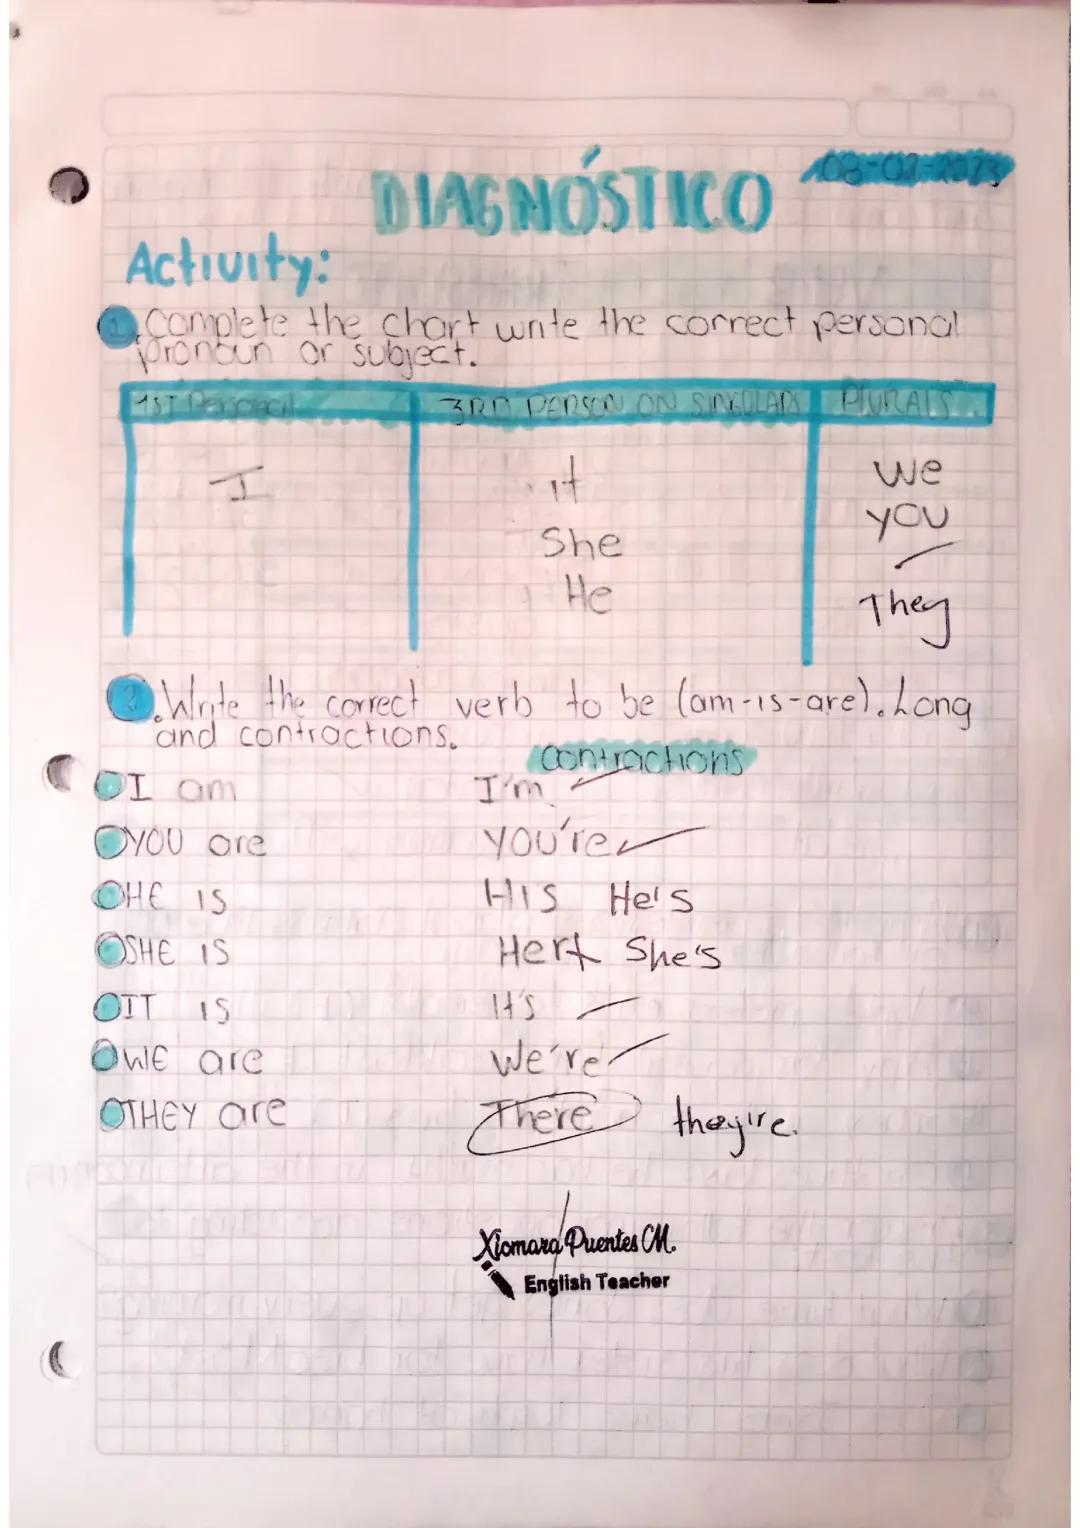 08-02-2023
DIAGNÓSTICO
Activity:
1. Complete the chart write the correct personal
pronoun or subject.
1ST Personal 3RD PERSON ON SINGULARS PLURALS
I it we
She you
He They
2. Write the correct verb to be (am-is-are). Long
and contractions.
contractions
I am I'm
YOU are YOU're
HE IS HIS He's
SHE IS Her She's
IT IS It's
WE are We're
THEY are There they're.
Xiomara Puentes CM.
English Teacher